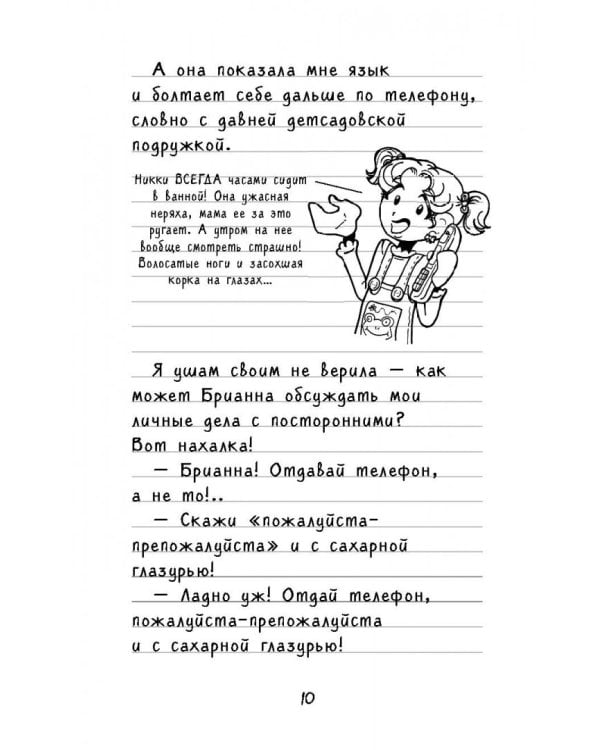 А она показала мне язык
и болтает себе дальше по телефону,
словно с давней детсадовской
подружкой.
Никки ВСЕГДА часами сидит
в ванной! Она ужасная
неряха, мама ее за это
ругает. А утром на нее
вообще смотреть страшно!
Волосатые ноги и засохшая
корка на глазах...
Я ушам своим не верила — как
может Брианна обсуждать мои
личные дела с посторонними?
Вот нахалка!
— Брианна! Отдавай телефон,
а не то!..
— Скажи «пожалуйста-
препожалуйста» и с сахарной
глазурью!
— Ладно уж! Отдай телефон,
пожалуйста-препожалуйста
и с сахарной глазурью!
10